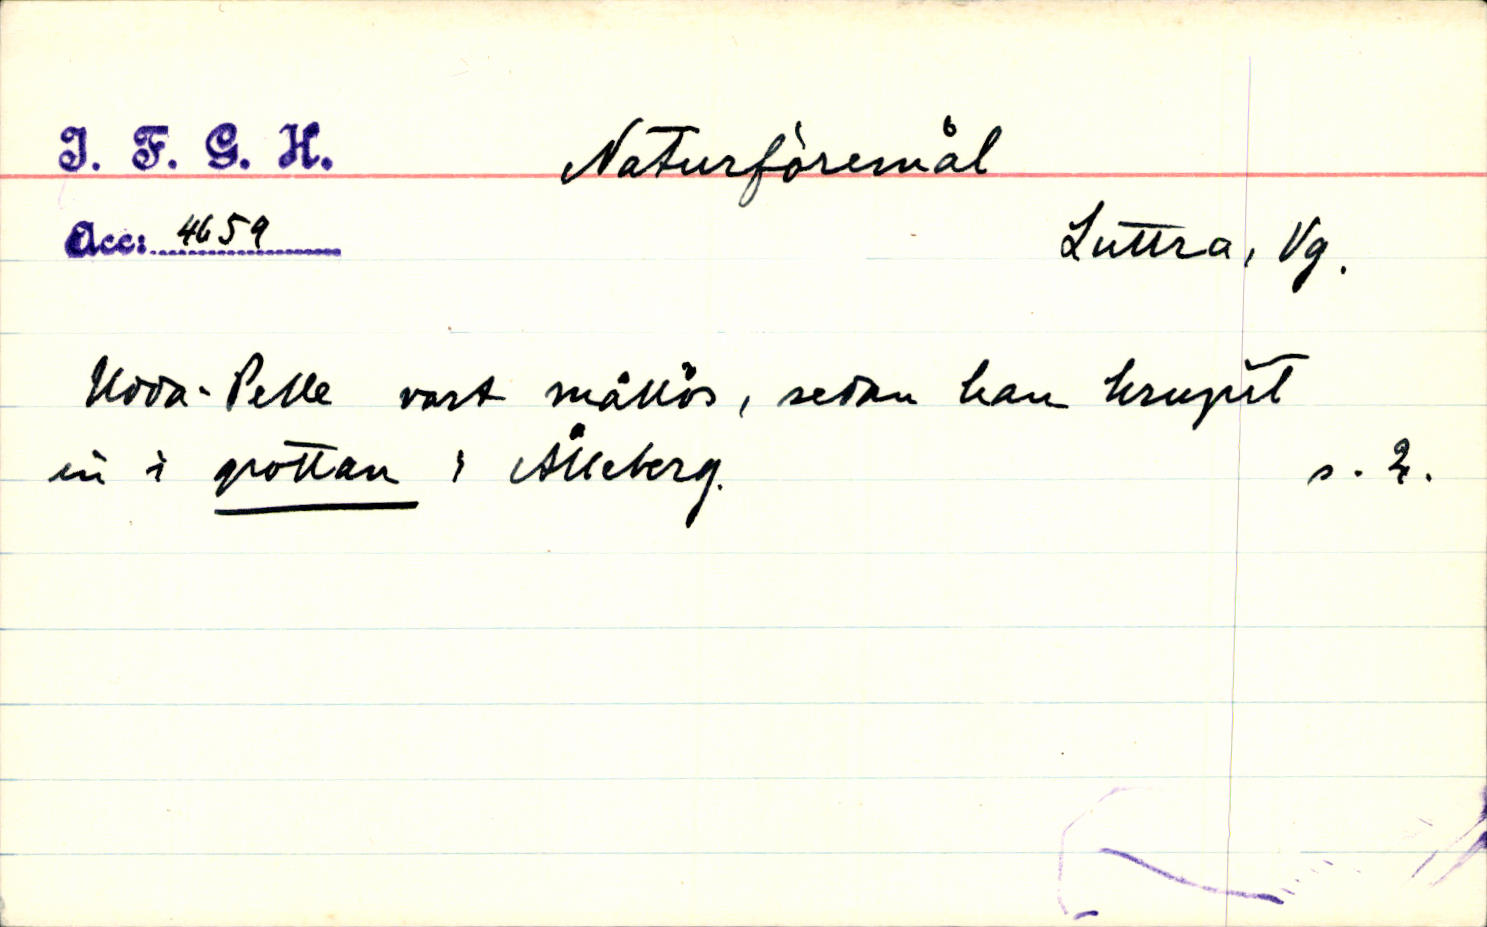 I. F. G. H.
Naturföremål
Acc: 4659
Luttra, Vg.
Pelle vart mållös, sedan han krupit
in i grottan i Ålleberg. s. 2.